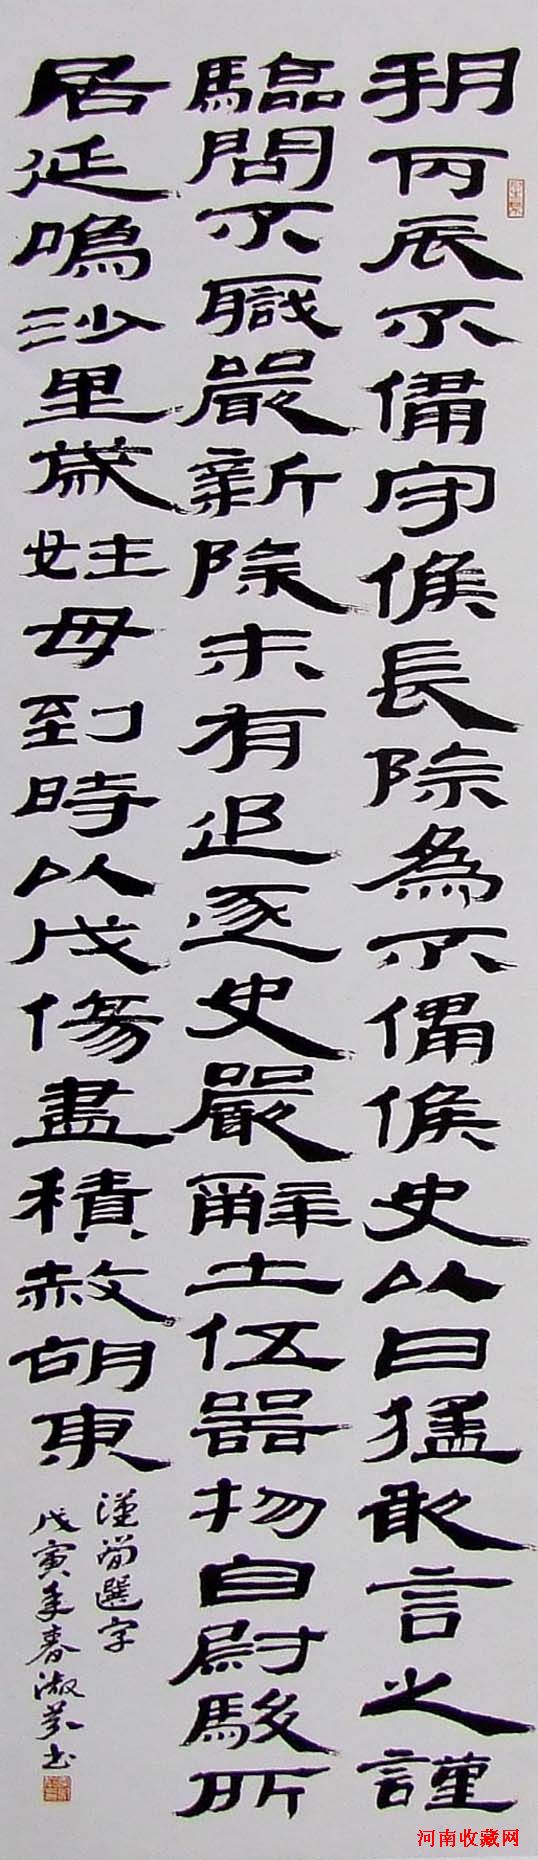 朔丙辰不備守候長除為不備候史以日猛敢言之謹
驗問不職嚴新除未有追逐史嚴辭士伍器物自尉駿所
居延鳴沙里歲姓母到時以戊傷盡積赦胡東
漢簡選字
戊寅年春淑芬书
河南收藏网